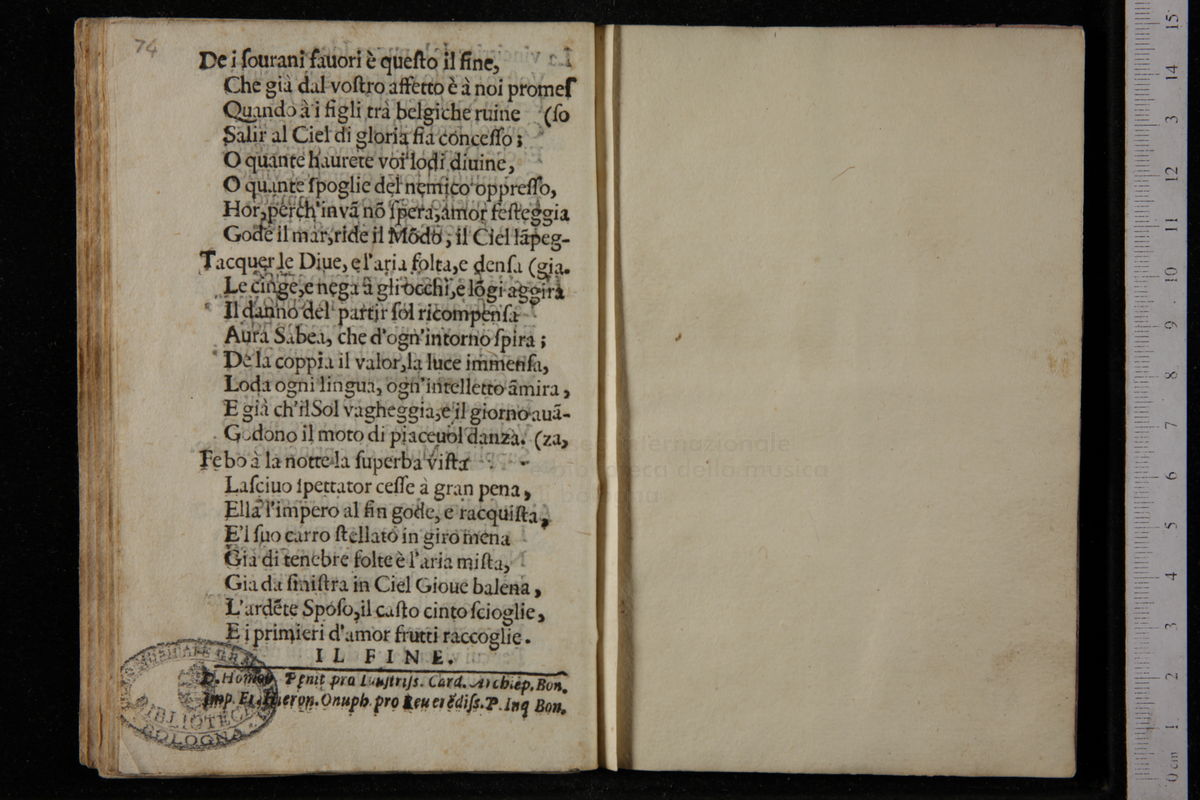 74
De i ſourani fauori è queſto il fine,
Che già dal voſtro affetto è à noi promeſ
Quando à i figli trà belgiche ruine (ſo
Salir al Ciel di gloria fia conceſſo;
O quante haurete voi lodi diuine,
O quante ſpoglie del nemico oppreſſo,
Hor, perch'invã nõ ſpera, amor feſteggia
Gode il mar, ride il Mõdo, il Ciel lãpeg-
Tacquer le Diue, e l'aria folta, e denſa (gia.
Le cinge, e nega à gli occhi, e lõgi aggira
Il danno del partir ſol ricompenſa
Aura Sabea, che d'ogn'intorno ſpira;
De la coppia il valor, la luce immenſa,
Loda ogni lingua, ogn'intelletto ãmira,
E già ch'il Sol vagheggia, e il giorno auã-
Godono il moto di piaceuol danza. (za,
Febo à la notte la ſuperba viſta
Laſciuo ſpettator ceſſe à gran pena,
Ella l'impero al fin gode, e racquiſta,
E'l ſuo carro ſtellato in giro mena
Già di tenebre folte è l'aria miſta,
Già da ſiniſtra in Ciel Gioue balena,
L'ardẽte Spoſo, il caſto cinto ſcioglie,
E i primieri d'amor frutti raccoglie.
IL FINE.
D. Homob. Penit pro Illuſtriſs. Card. Archiep. Bon.
Imp. Fr. Hieron. Onuph. pro Reuerẽdiſs. P. Inq Bon.
BIBLIOTECA
BOLOGNA
museo internazionale
e biblioteca della musica
di bologna
0 cm 1 2 3 4 5 6 7 8 9 10 11 12 3 14 15